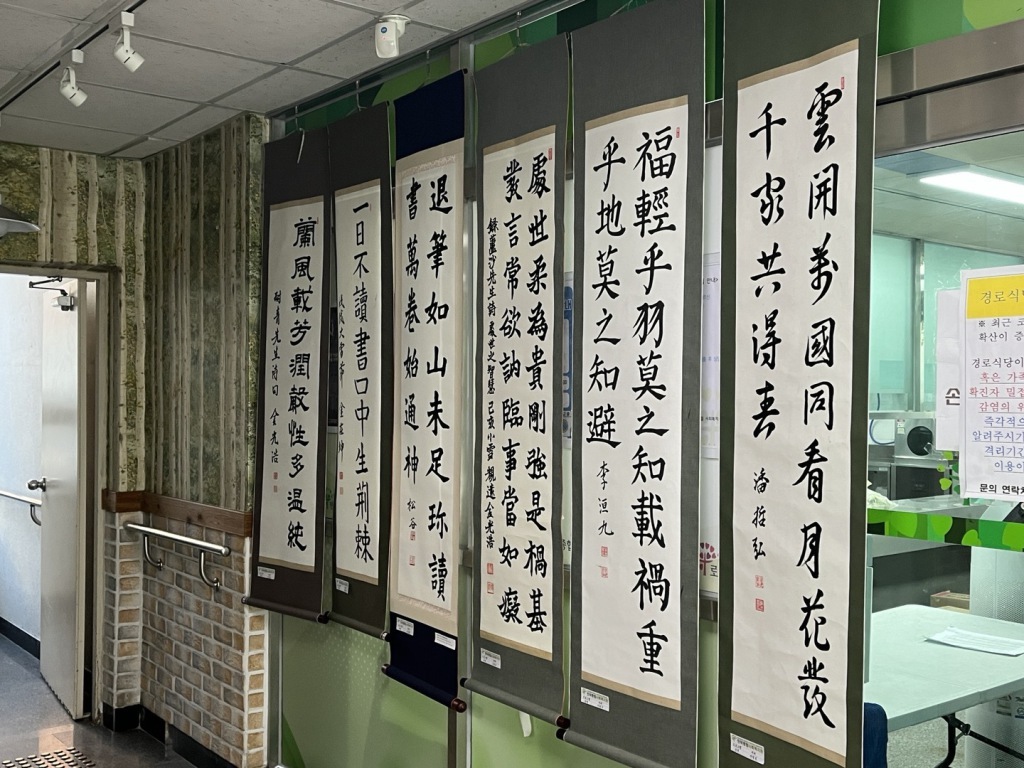 雲開萬國同看月花發
千家共得春
潘哲弘
福輕乎羽莫之知載禍重
乎地莫之知避
李洹九
處世柔為貴剛強是禍基
發言常欲訥臨事當如癡
先生詩處世之智慧 己亥小雪 金光浩
退筆如山未足珍讀
書萬卷始通神
松谷
一日不讀書口中生荊棘
蘭風載芳潤嚴性多温純
耐青先生詩句 金光浩
경로식당
※ 최근 코
확산이 증
경로식당이
혹은 가족
확진자 밀접
감염의 우
즉각적으
알려주시기
격리기간
이용이
문의 연락처
손